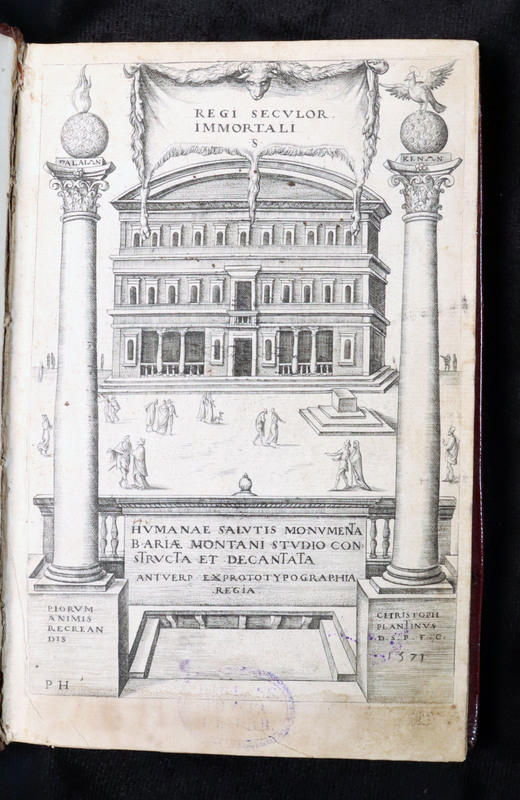 REGI SECVLOR.
IMMORTALI
S
PALAIAN
KENAN
HVMANAE SALVTIS MONVMENTA
B·ARIÆ MONTANI STVDIO CON
STRVCTA ET DECANTATA
ANTVERP EX PROTOTYPOGRAPHIA
REGIA
PIORVM
ANIMIS
RECREAN
DIS
P H
CHRISTOPH
PLANTINVS
D. S. P. F. C.
1571